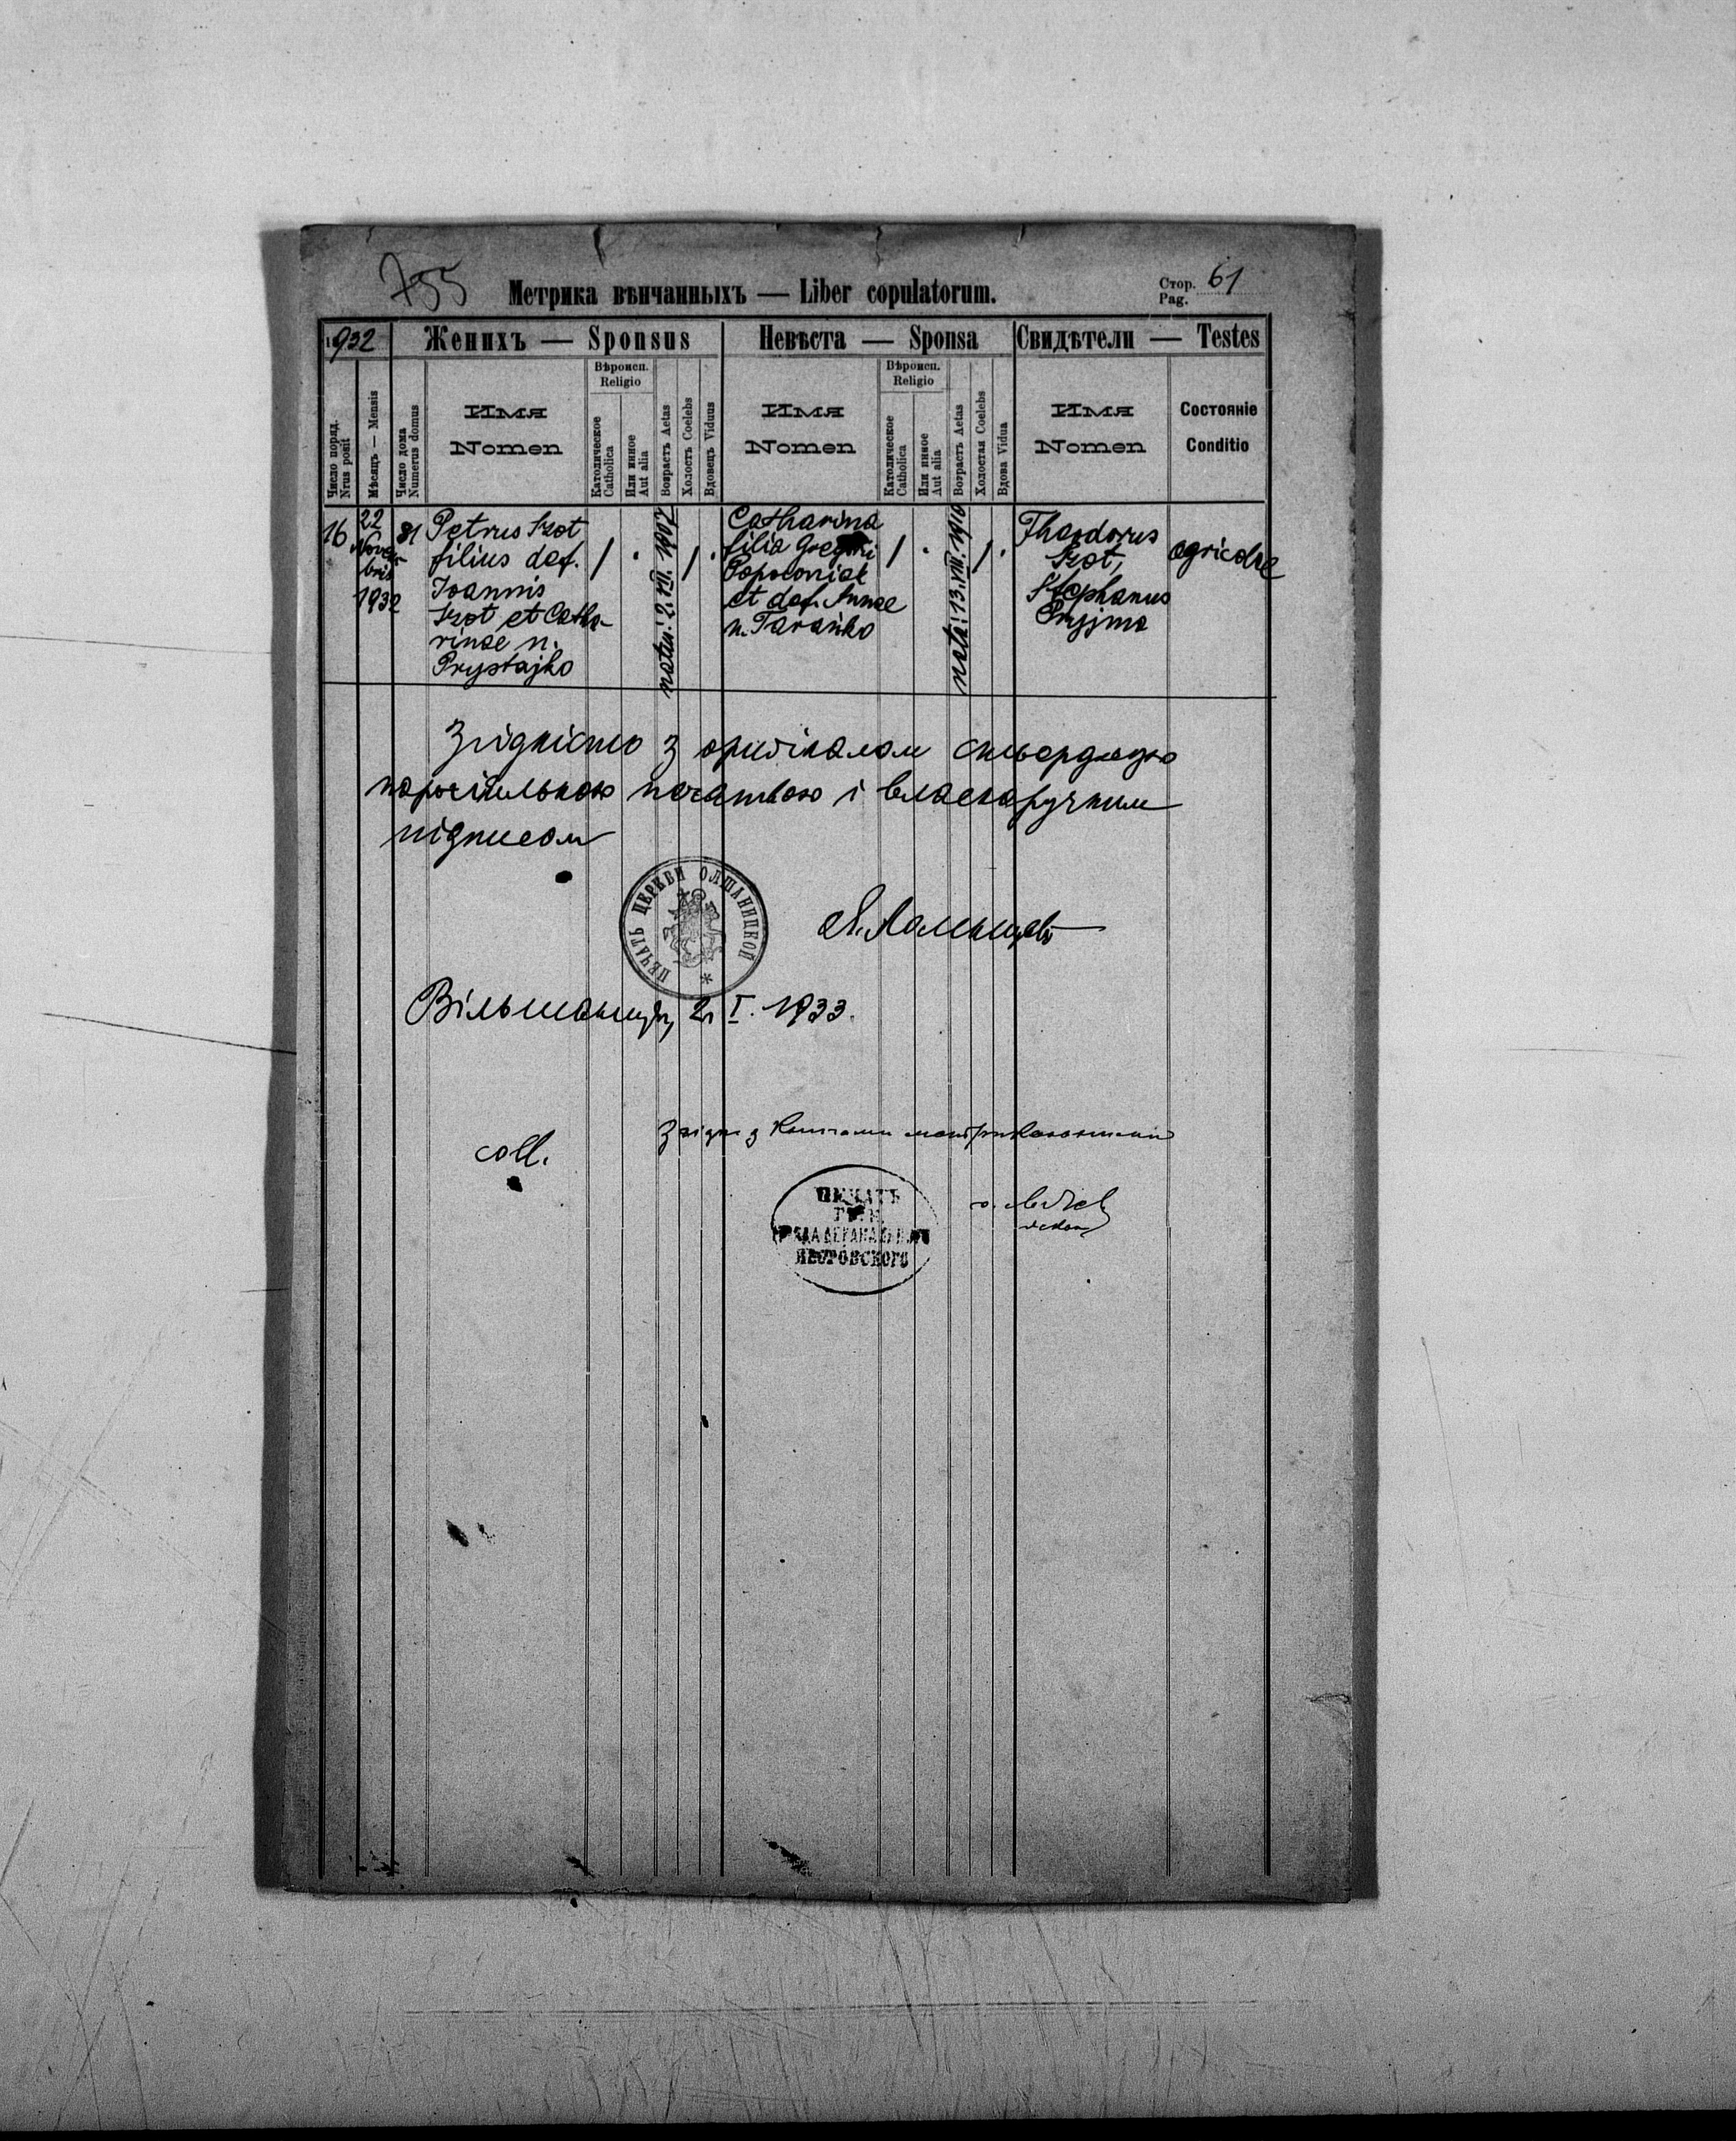 755
Метрика вѣнчанныхъ — Liber copulatorum.
Стор. Pag. 61
1932
Женихъ — Sponsus
Невѣста — Sponsa
Свидѣтели — Testes
Число поряд. Nrus posit
Мѣсяцъ — Mensis
Число дома Numerus domus
Имя Nomen
Вѣроисп. Religio
Католическое Catholica
Или инное Aut alia
Возрастъ Aetas
Холостъ Coelebs
Вдовецъ Viduus
Имя Nomen
Вѣроисп. Religio
Католическое Catholica
Или инное Aut alia
Возрастъ Aetas
Холостая Coelebs
Вдова Vidua
Имя Nomen
Состояніе Conditio
16
22
Novem-
bris
1932
81
Petrus Szot
filius def.
Joannis
Szot et Catha-
rinae n.
Prystajko
natus: 2. VII. 1907
Catharina
filia Gregorii
et def. Annae
n. Tarańko
nata: 13. VIII. 1910
Theodorus
Szot,
Stephanus
Pryjma
agricolae
Згідність з оригіналом стверджую
парохіяльною печаткою і власноручним
підписом
ПЕЧАТЬ ЦЕРКВИ ОЛШАНИЦКОЙ
Вільшаниця, 2. I. 1933.
coll.
Згідне з книгами метрикальними
ПЕЧАТЬ
ЯВОРОВСКОГО